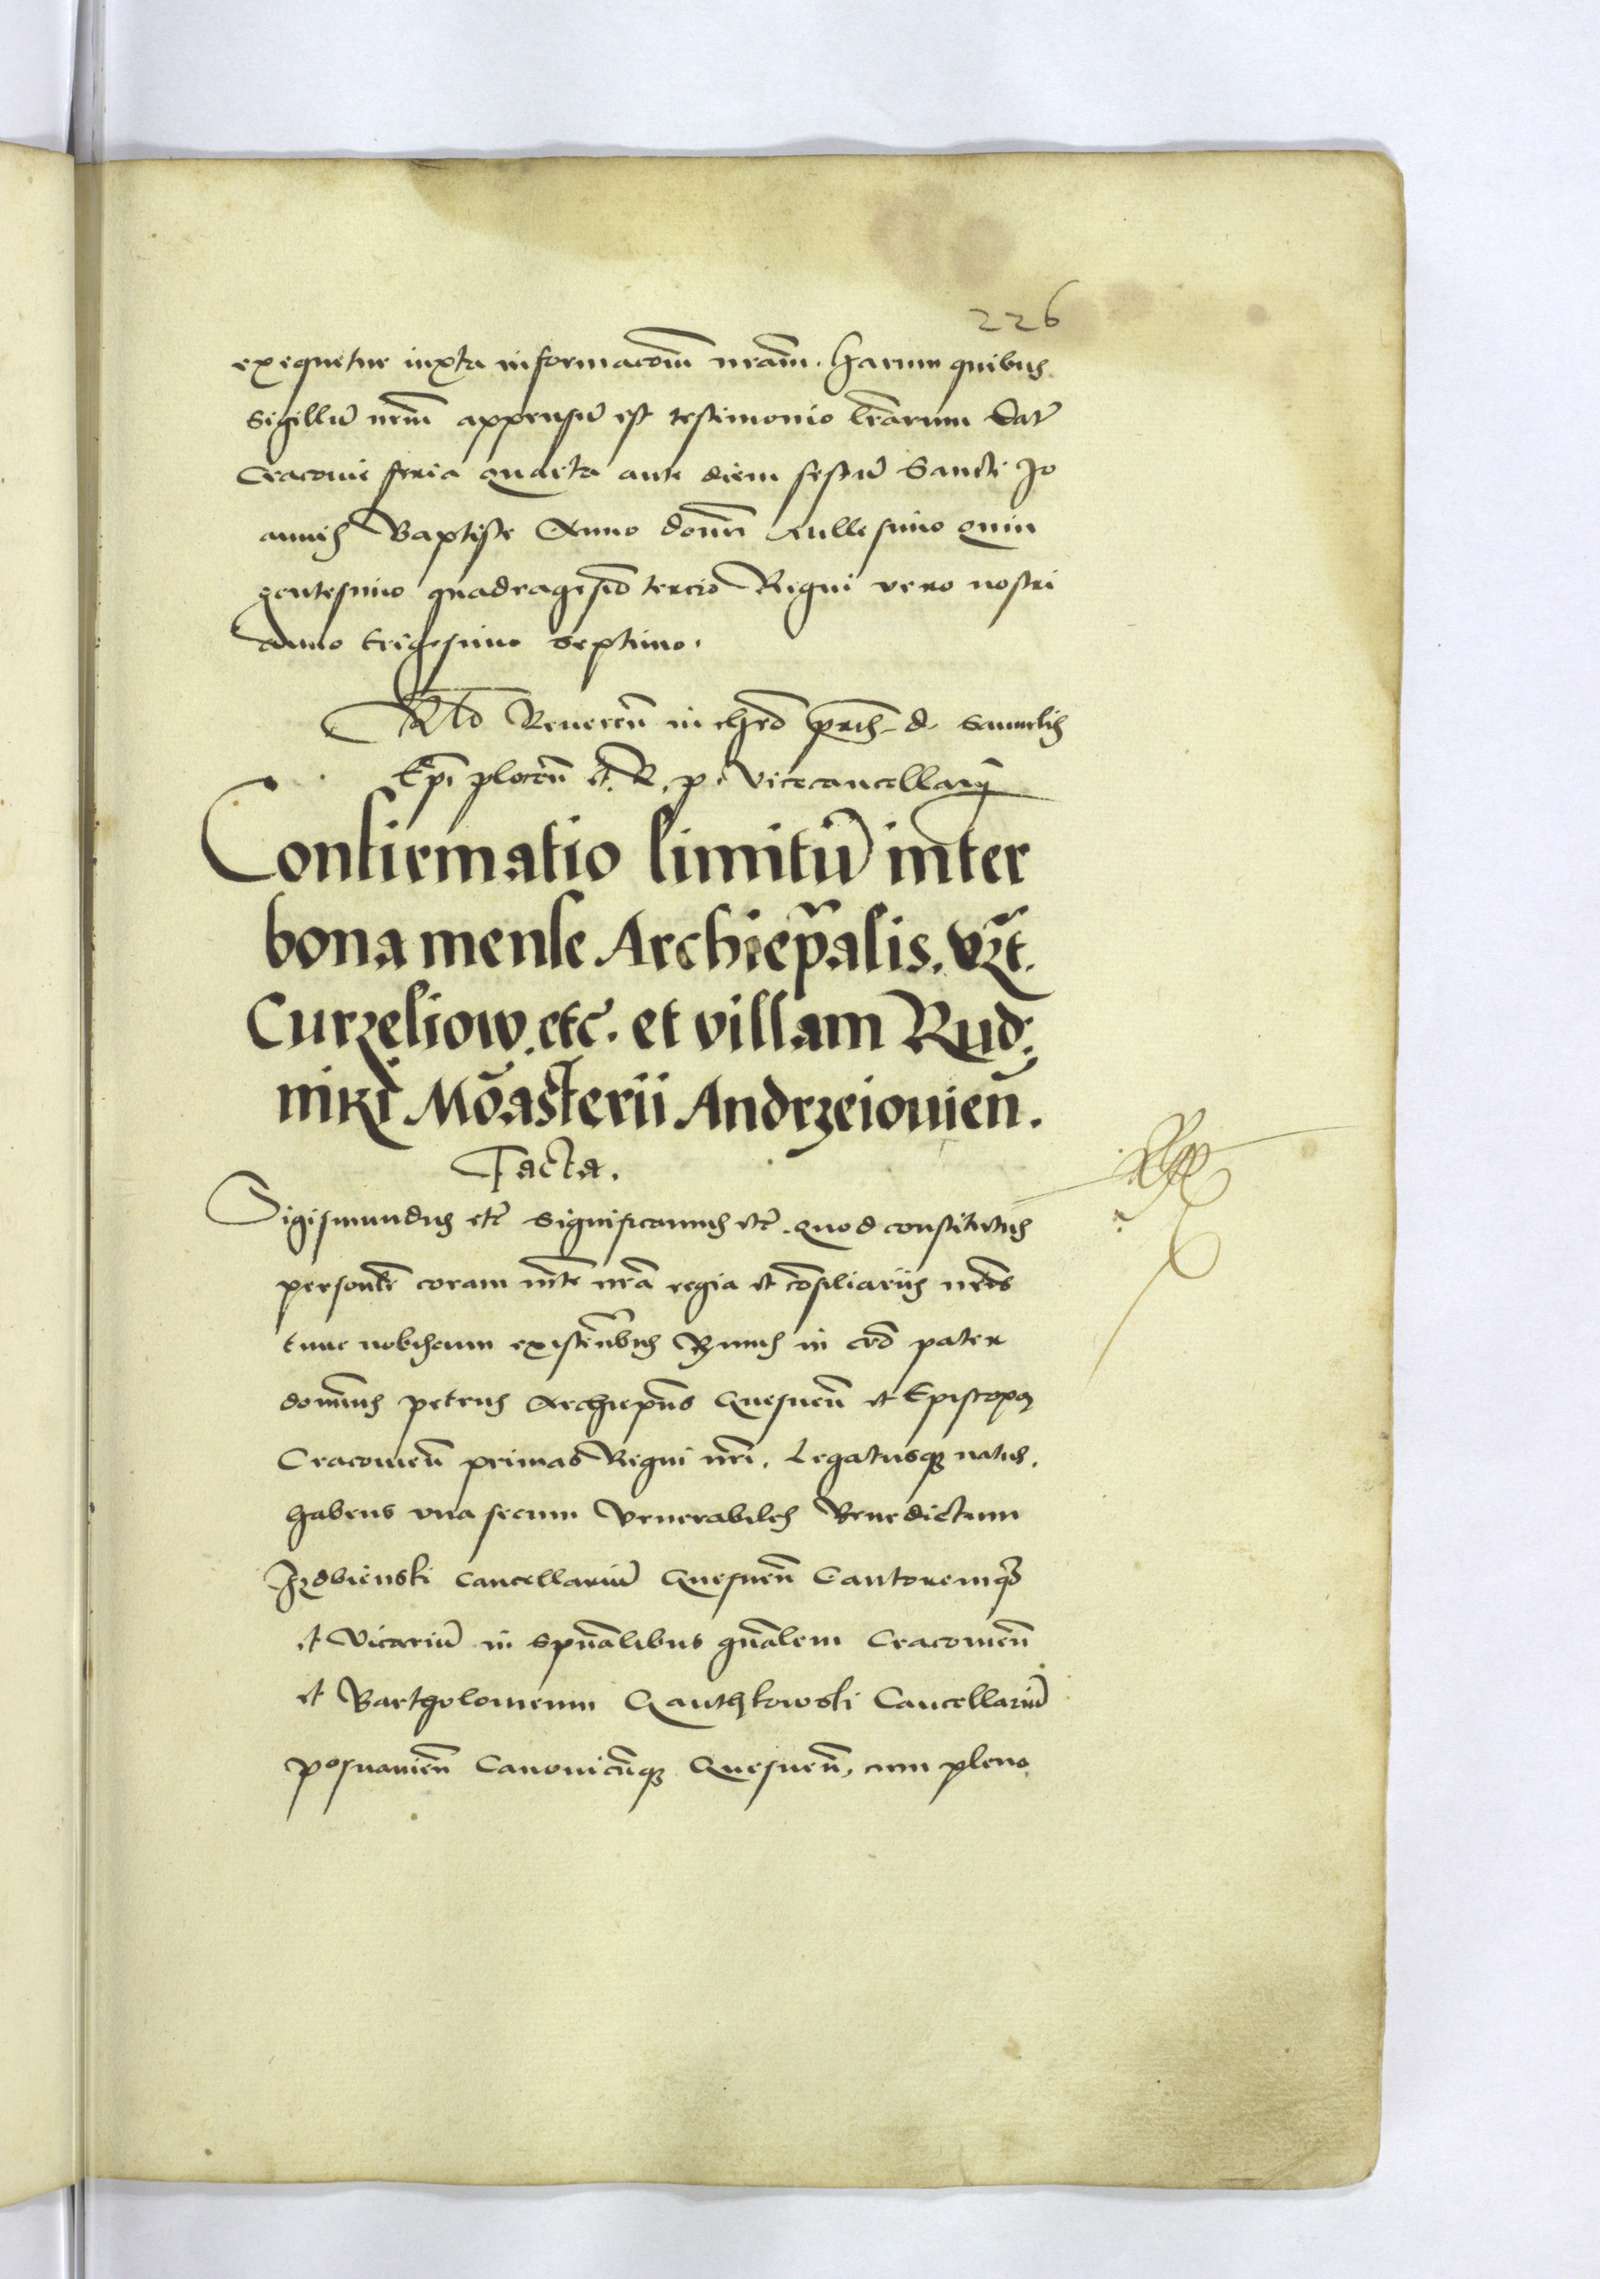 226
exequetur iuxta informacom̃ nram̃. Harum quibus
Sigillũ nrm̃ appensũ est testimonio lrãrum Dat̃
Cracovie feria quarta ante diem festũ Sancti Jo
annis Baptiste Anno domĩ Millesimo quin
gentesimo quadragesiõ tercio Regni vero nostri
anno trigesimo septimo.
Rlo Reveren̄ in chrõ p̃ris d. Samuelis
Ep̃i plocen̄ et R. p. Vicecancellarij
Confirmatio limitũ inter
bona mense Archiep̃alis. vz̃t.
Curzeliow. etc̃. et villam Rud:
niki Mõasterii Andrzeiouien̄.
Facta.
Sigismundus etc̃ Significamus etc̃. quod constitutus
personlr̃ coram mt̃e nrã regia et cõsiliariis nr̃is
tunc nobiscum existen̄tibus R̃mus in crõ pater
domĩnus petrus Archiep̃us Gnesnen̄ et Episcopus
Cracovien̄ primas Regni nr̃i. Legatusq; natus.
habens una secum Venerabiles Benedictum
Izdbienski Cancellariũ Gnesnen̄ Cantoremq;
et Vicariũ in spũalibus gñalem Cracovien̄
et Bartholomeum Ganthkowski Cancellariũ
posnanien̄ Canonicũq; Gnesnen̄, cum pleno